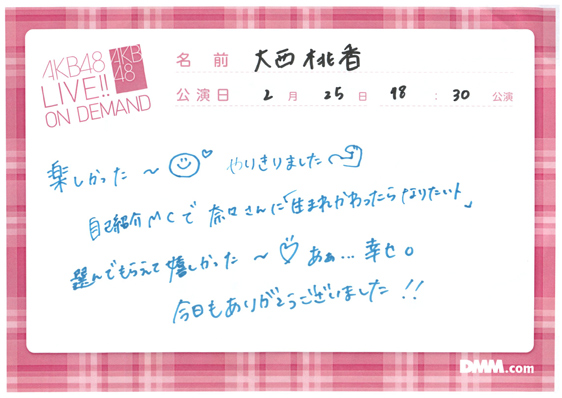 AKB48
LIVE!!
ON DEMAND
AKB
48
名前 大西桃香
公演日 2月25日 18:30 公演
楽しかった〜 やりきりました
自己紹介MCで 奈々さんに「生まれかわったらなりたい人」
選んでもらえて嬉しかった〜♡ あぁ... 幸せ。
今日もありがとうございました!!
DMM.com